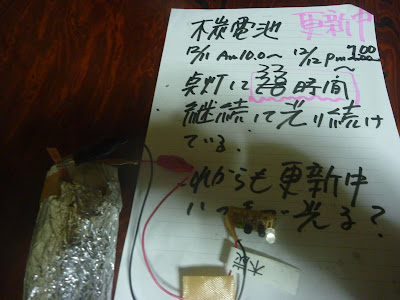 木炭電池 更新中
12/11 Am10.0〜 12/12 pm 7.00
33
点灯に 28時間
継続して光り続け
ている.
れからも更新中
いつまで光る?
木炭